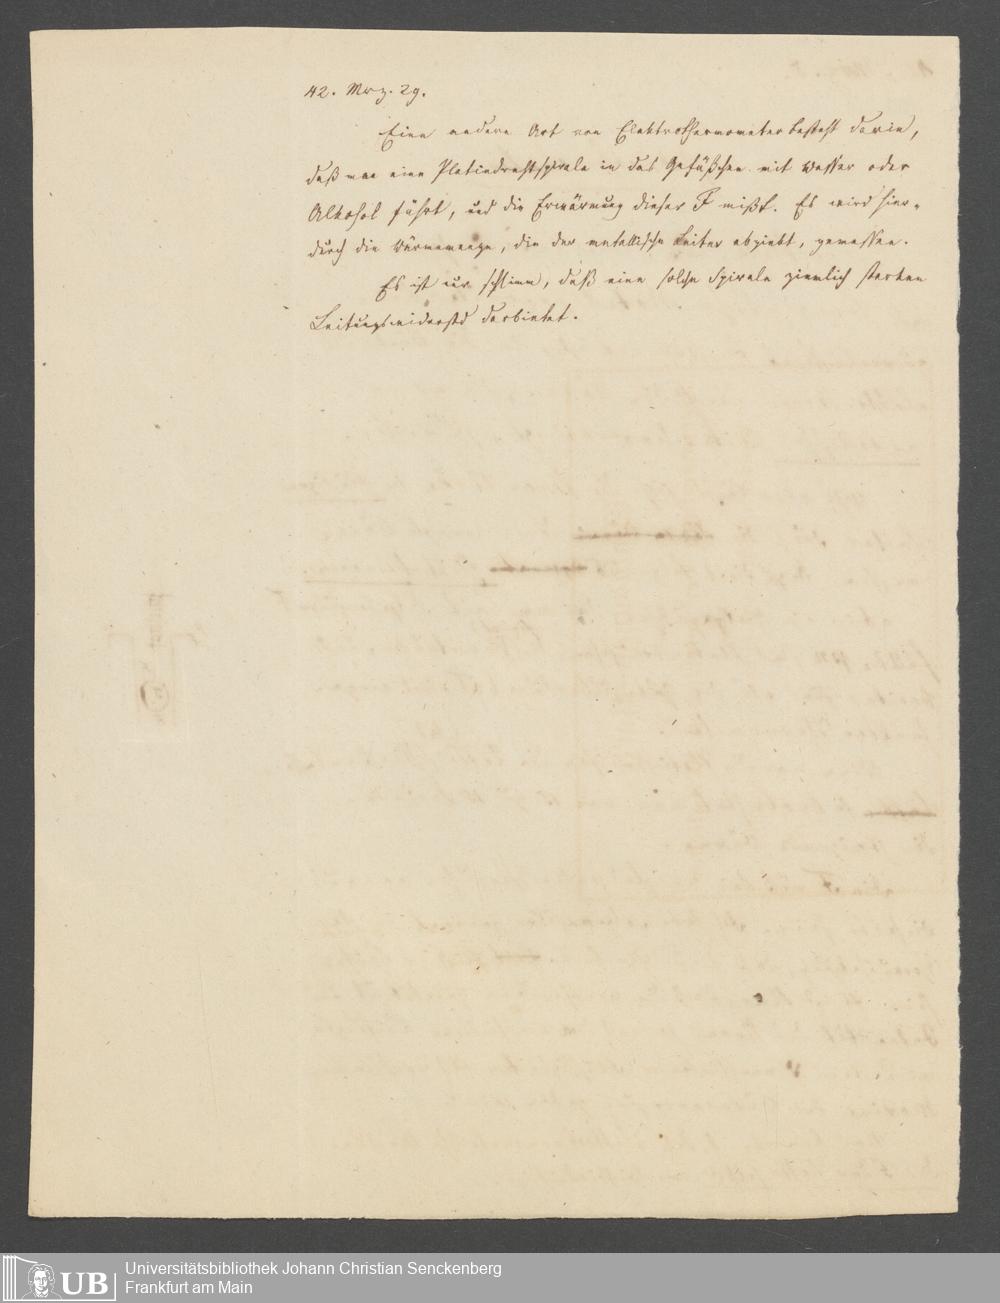 42. Mrz. 29.
Eine andere Art von Elektrothermometer besteht darin,
daß man eine Platindrahtspirale in das Gefäßchen mit Wasser oder
Alkohol führt, und die Erwärmung dieser F mißt. Es wird hier-
durch die Wärmemenge, die der metallische Leiter abgiebt, gemessen.
Es ist nur schlimm, daß eine solche Spirale ziemlich starken
Leitungswiderstd darbietet.
UB Universitätsbibliothek Johann Christian Senckenberg
Frankfurt am Main